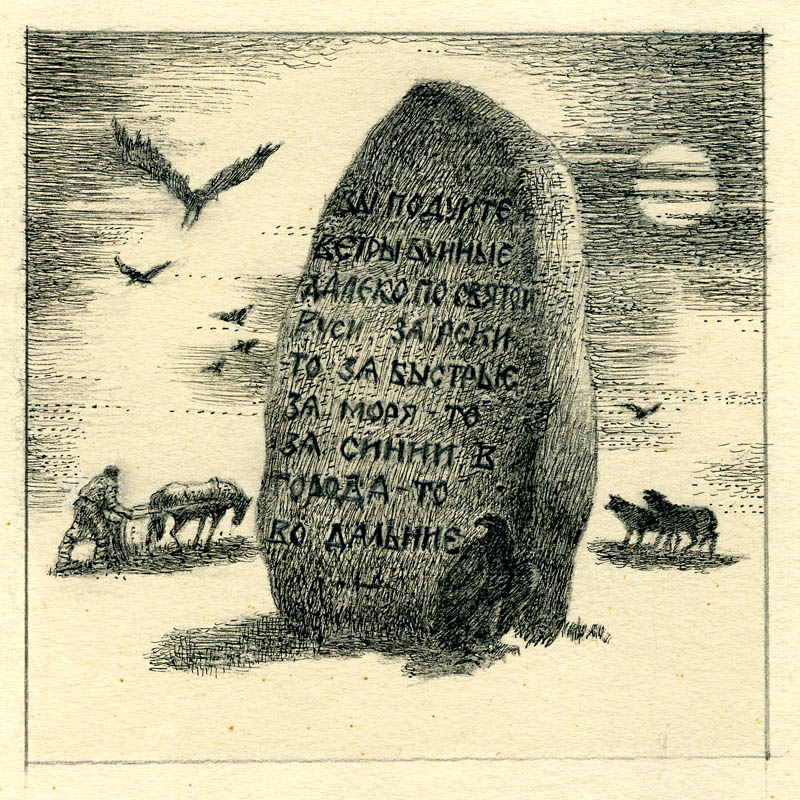 ЗЫ ПОДУИТЕ
ВЕТРЫ БУИНЫЕ
ДАЛЕКО ПО СВЯТОИ
РУСИ ЗА РЕКИ
ТО ЗА БЫСТРЫЕ
ЗА МОРЯ-ТО
ЗА СИНИИ В
ГОРОДА-ТО
ВО ДАЛЬНИЕ